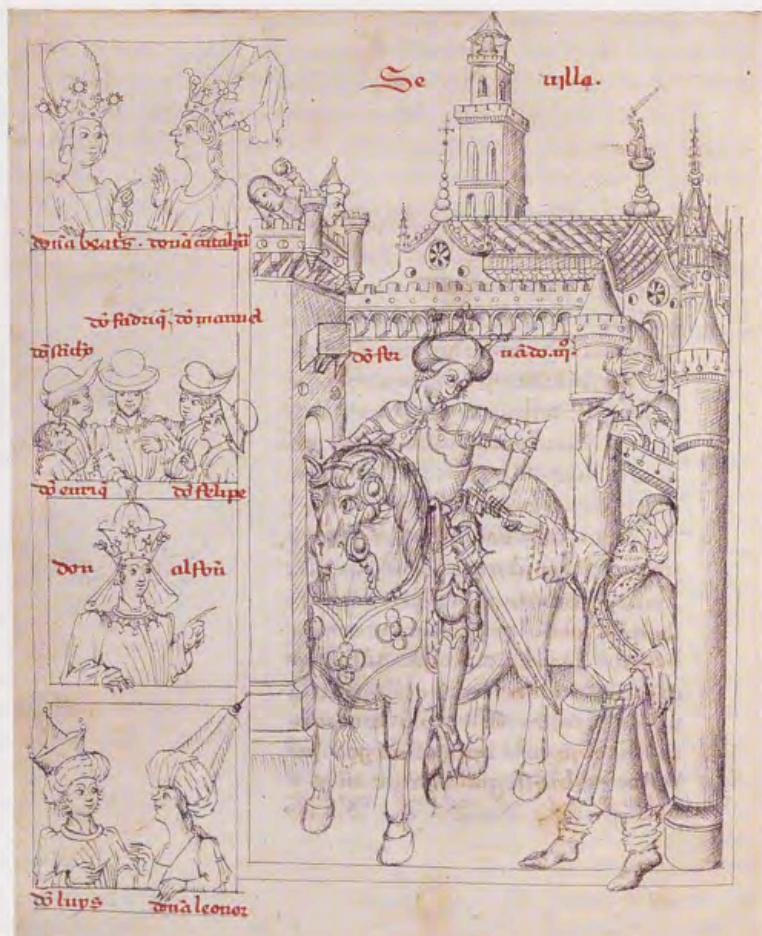 Se uilla.
dona beats. dona catalina
do fadriq. do manuel
do sancho
do fernado. iii°.
do enriq do felipe
don alfon
do luys dona leonor